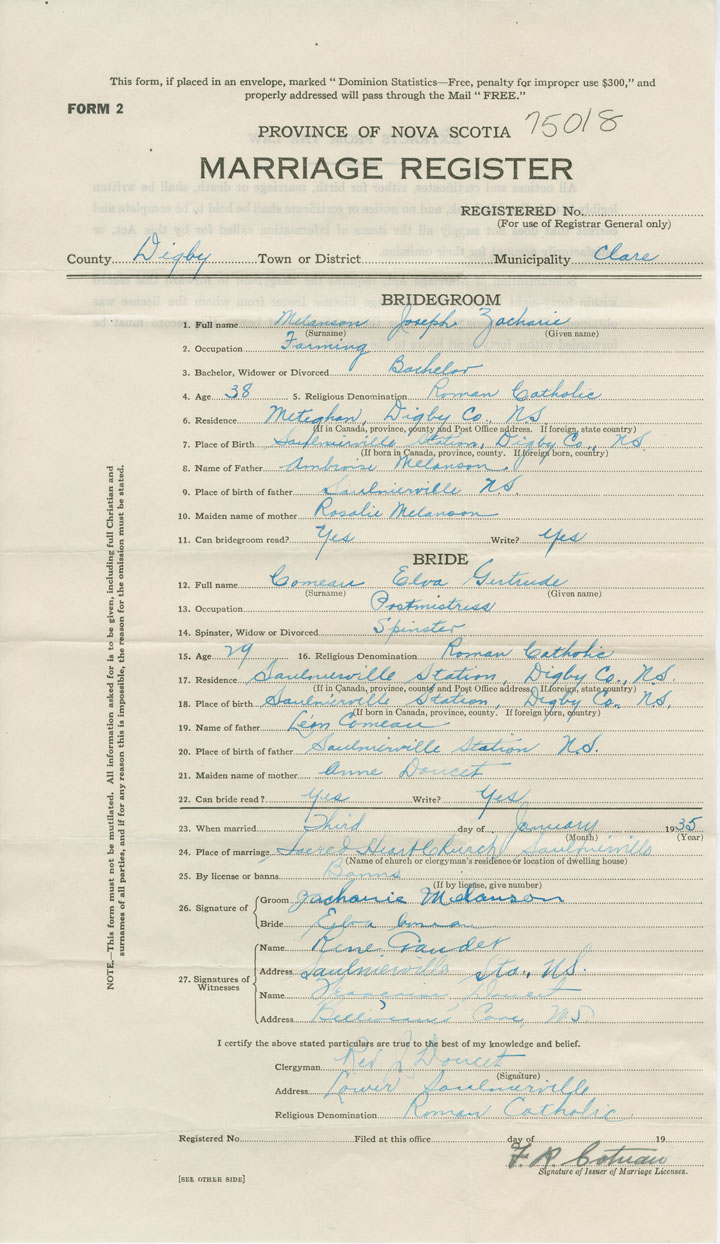 This form, if placed in an envelope, marked " Dominion Statistics—Free, penalty for improper use $300," and
properly addressed will pass through the Mail " FREE."
FORM 2
PROVINCE OF NOVA SCOTIA 75018
MARRIAGE REGISTER
REGISTERED No.
(For use of Registrar General only)
County Digby Town or District Municipality Clare
BRIDEGROOM
1. Full name Melanson Joseph Zacharie
(Surname) (Given name)
2. Occupation Farming
3. Bachelor, Widower or Divorced Bachelor
4. Age 38 5. Religious Denomination Roman Catholic
6. Residence Meteghan, Digby Co., NS
(If in Canada, province, county and Post Office address. If foreign, state country)
7. Place of Birth Saulnierville Station, Digby Co., NS
(If born in Canada, province, county. If foreign born, country)
8. Name of Father Ambroise Melanson
9. Place of birth of father Saulnierville N.S.
10. Maiden name of mother Rosalie Melanson
11. Can bridegroom read? Yes Write? Yes
BRIDE
12. Full name Comeau Elva Gertrude
(Surname) (Given name)
13. Occupation Postmistress
14. Spinster, Widow or Divorced Spinster
15. Age 29 16. Religious Denomination Roman Catholic
17. Residence Saulnierville Station, Digby Co., N.S.
(If in Canada, province, county and Post Office address. If foreign, state country)
18. Place of birth Saulnierville Station, Digby Co., N.S,
(If born in Canada, province, county. If foreign born, country)
19. Name of father Léon Comeau
20. Place of birth of father Saulnierville Station N.S.
21. Maiden name of mother Anne Doucet
22. Can bride read? Yes Write? Yes
23. When married Third day of January 1935
(Month) (Year)
24. Place of marriage Sacred Heart Church Saulnierville
(Name of church or clergyman's residence or location of dwelling house)
25. By license or banns Banns
(If by license, give number)
26. Signature of Groom Zacharie Melanson
Bride Elva Comeau
27. Signatures of Witnesses
Name René Gaudet
Address Saulnierville Sta., N.S.
Name Doucet
Address Belliveau's Cove, N.S.
I certify the above stated particulars are true to the best of my knowledge and belief.
Clergyman Rev Doucet
(Signature)
Address Lower Saulnierville
Religious Denomination Roman Catholic.
Registered No. Filed at this office day of 19
F. R.
Signature of Issuer of Marriage Licenses.
[SEE OTHER SIDE]
NOTE.—This form must not be mutilated. All information asked for is to be given, including full Christian and
surnames of all parties, and if for any reason this is impossible, the reason for the omission must be stated.